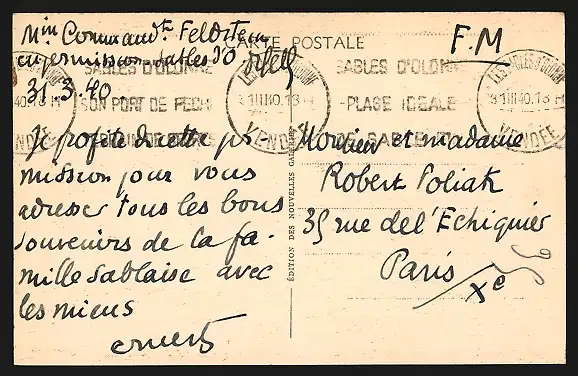 CARTE POSTALE
F.M
Min Commandt Feldstein
en permission Sables d'O
31.3.40
SABLES D'OLONNE
SON PORT DE PECHE
SABLES D'OLONNE
PLAGE IDEALE
LES SABLES D'OLONNE
VENDÉE
Je profite de cette per
mission pour vous
adresser tous les bons
souvenirs de la fa-
mille sablaise avec
les miens
ÉDITION DES NOUVELLES GALERIES
Monsieur et madame
Robert Poliak
35 rue de l'Echiquier
Paris
Xe